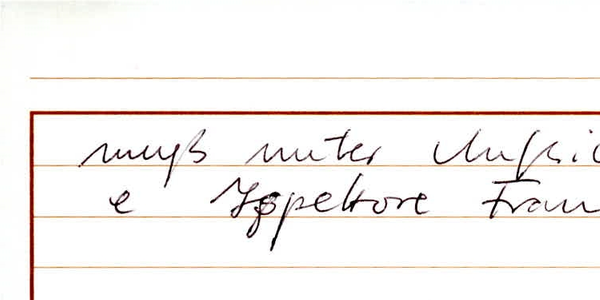 muß unter Aufsic
e Fran